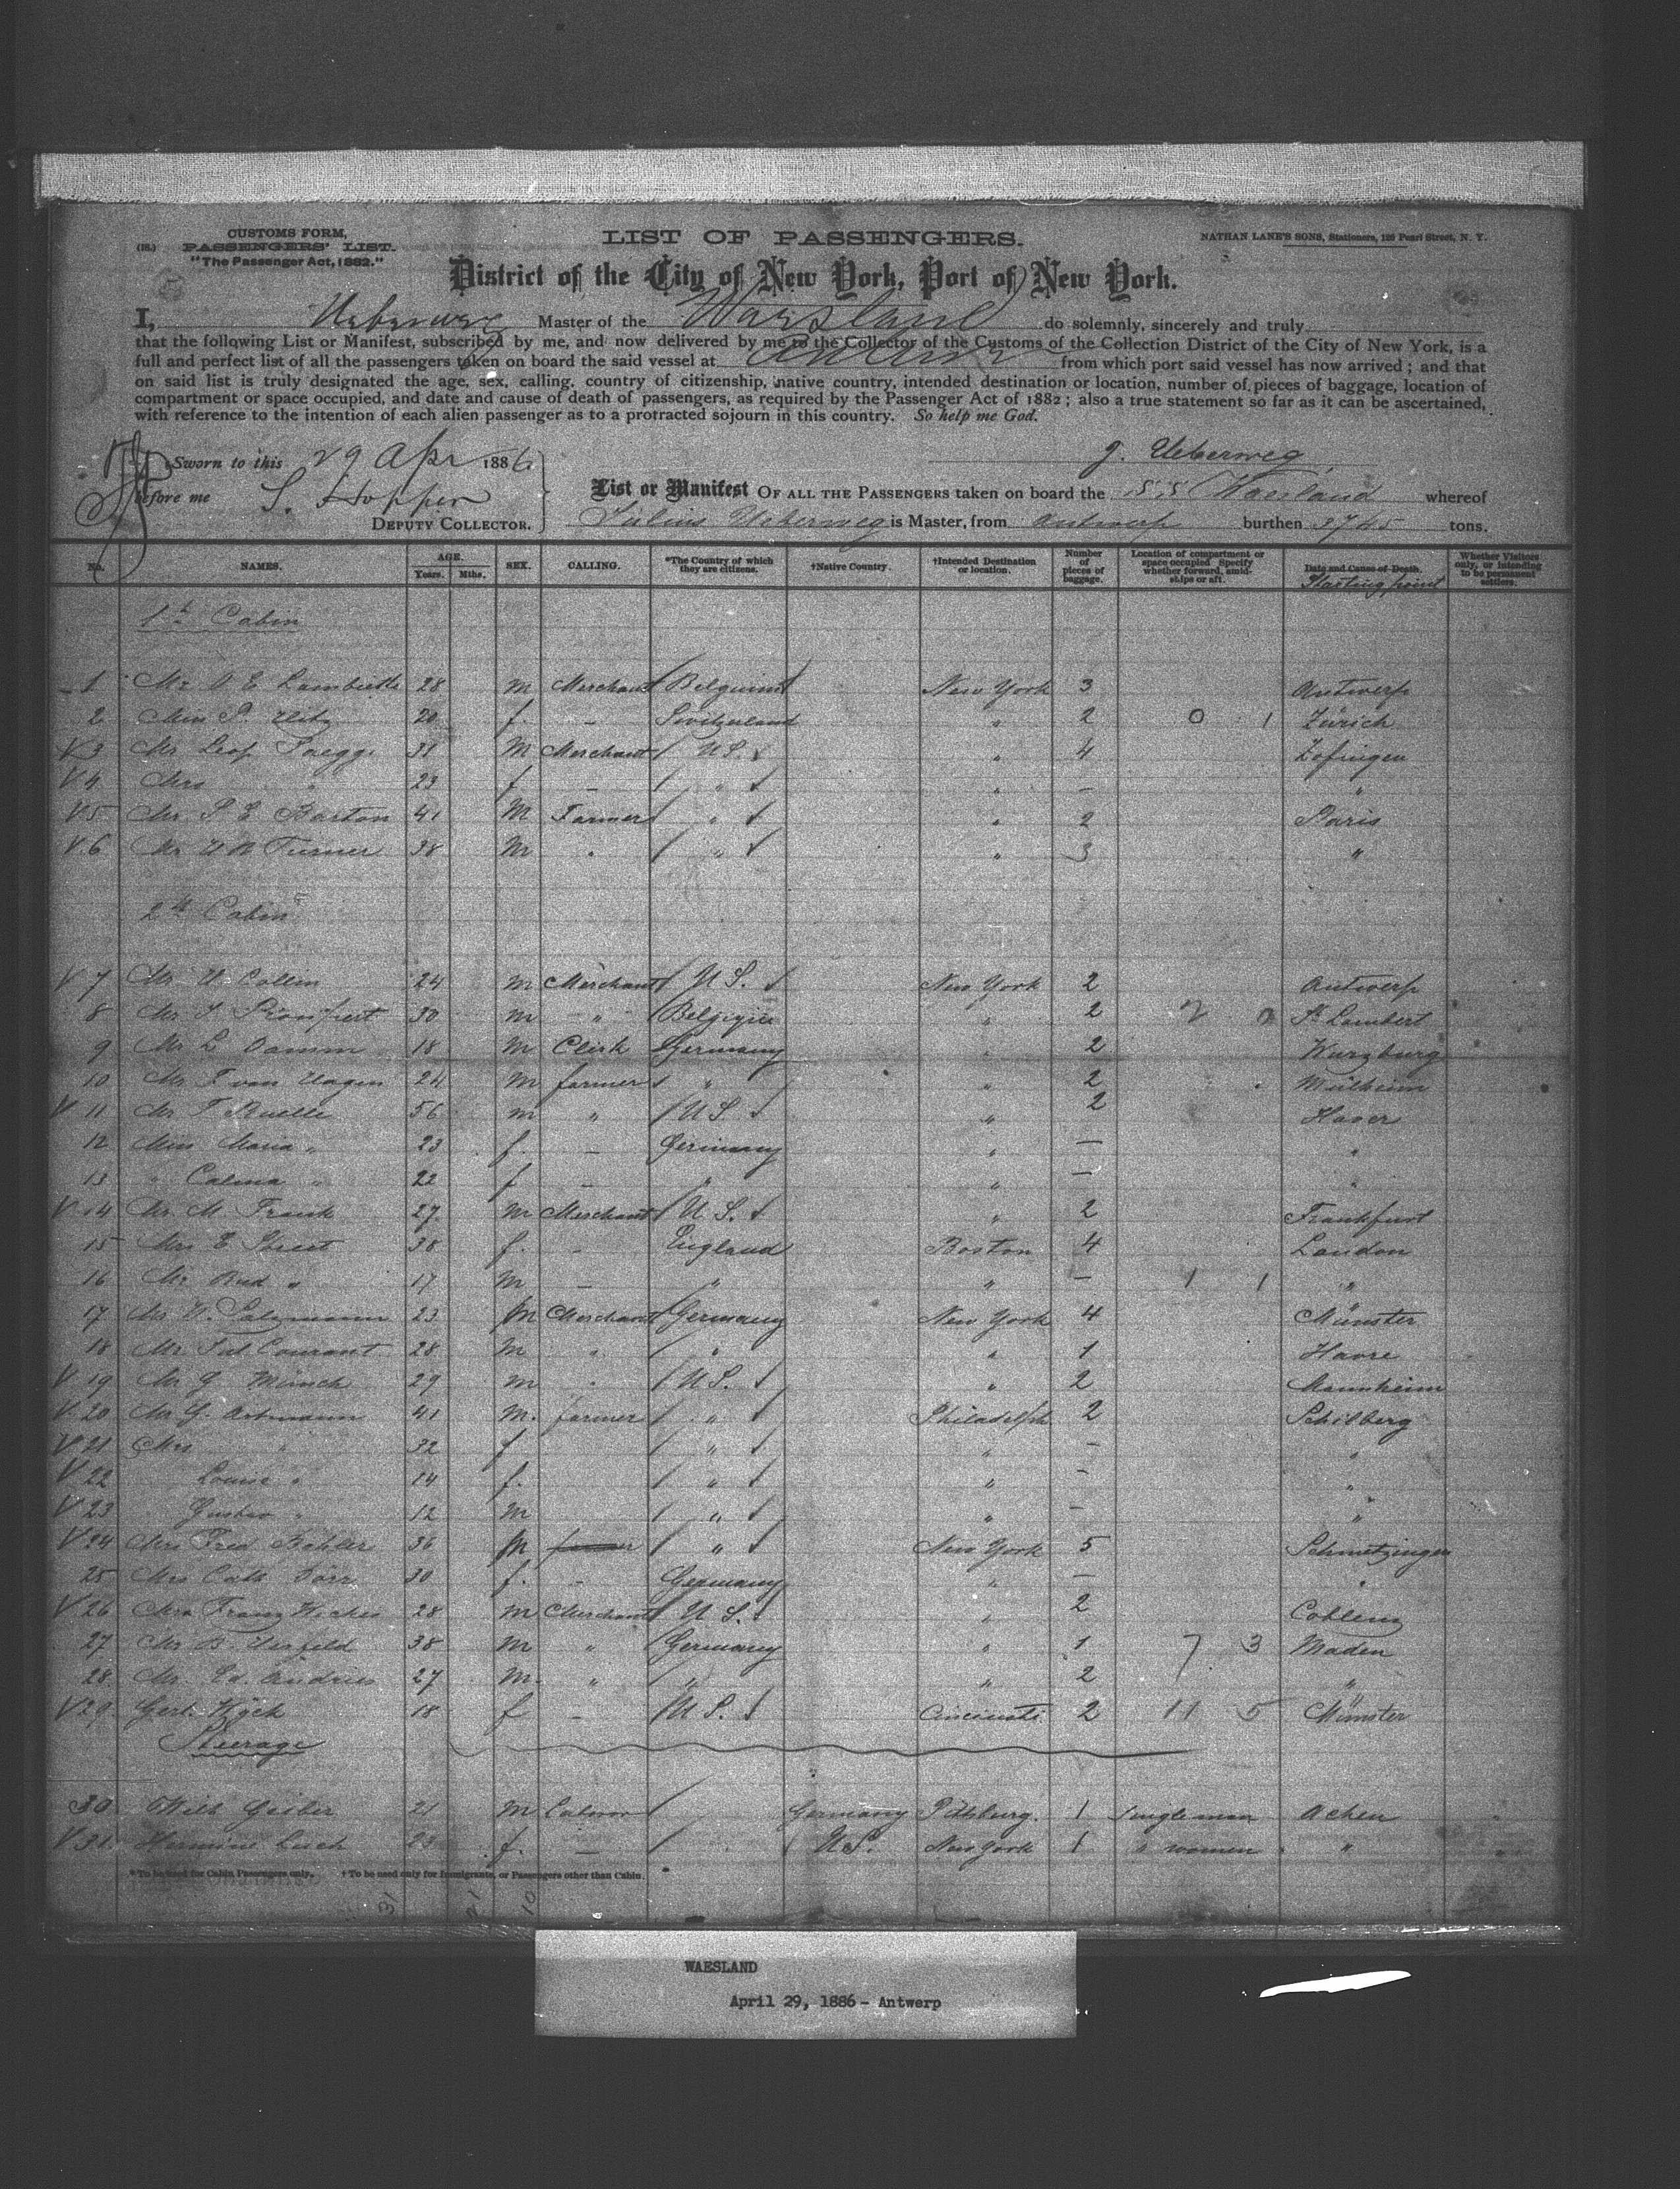 (18.) CUSTOMS FORM, PASSENGERS' LIST. "The Passenger Act, 1882."
LIST OF PASSENGERS.
NATHAN LANE'S SONS, Stationers, 120 Pearl Street, N. Y.
District of the City of New York, Port of New York.
I, Ueberweg Master of the Waesland do solemnly, sincerely and truly
that the following List or Manifest, subscribed by me, and now delivered by me to the Collector of the Customs of the Collection District of the City of New York, is a
full and perfect list of all the passengers taken on board the said vessel at Antwerp from which port said vessel has now arrived; and that
on said list is truly designated the age, sex, calling, country of citizenship, native country, intended destination or location, number of pieces of baggage, location of
compartment or space occupied, and date and cause of death of passengers, as required by the Passenger Act of 1882; also a true statement so far as it can be ascertained,
with reference to the intention of each alien passenger as to a protracted sojourn in this country. So help me God.
Sworn to this 29 Apr 1886
J. Ueberweg
before me S. Hopper
DEPUTY COLLECTOR.
List or Manifest OF ALL THE PASSENGERS taken on board the SS Waesland whereof
Julius Ueberweg is Master, from Antwerp burthen 3745 tons.
No. NAMES. AGE. Years. Mths. SEX. CALLING. *The Country of which they are citizens. †Native Country. †Intended Destination or location. Number of pieces of baggage. Location of compartment or space occupied Specify whether forward, amidships or aft. Date and Cause of Death. Starting point Whether Visitors only, or intending to be permanent settlers.
1st Cabin
1 Mr 28 m Merchant Belguim New York 3 Antwerp
2 Miss 20 f. - Switzerland " 2 0 1 Zürich
V3 Mr Leop 31 M Merchant U S. " 4 Zofingen
V4 Mrs " 23 f - " " - "
V5 Mr P E Barton 41 M Farmer " " 2 Paris
V.6 Mr Turner 38 M " " " 3 "
2d Cabin
V 7 Mr Collin 24 m Merchant U S. New York 2 Antwerp
8 Mr 30 m " Belgigue " 2 2 0 St Lambert
9 Mr L Damm 18 M Clerk Germany " 2 Wurzburg
10 Mr F von Hagen 24 m farmer " " 2 Mülheim
V 11 Mr F Ruelle 56 m " U S. " 2 Haver
12 Miss Maria " 23 f. - Germany " - "
13 " " 22 f - " " - "
V 14 Mr M. Frank 27 m Merchant U S. " 2 Frankfurt
15 Mrs E Street 38 f. - England Boston 4 London
16 Mr " 17 M - " " - 1 1 "
17 Mr Salzmann 23 M Merchant Germany New York 4 Münster
18 Mr Jul Courant 28 M " " " 1 Havre
V 19 Mr G Münch 29 m " U S. " 2 Mannheim
V.20 Mr G. Artmann 41 M. farmer " Philadelph 2 Schilberg
V 21 Mrs " 32 f " " - "
V 22 Louise " 14 f. " " - "
V 23 Gustav " 12 M " " - "
V 24 Mr Fred Bahler 36 M farmer " New York 5 Schwetzingen
25 Mrs Cath Dörr 30 f. - Germany " - "
V 26 Mr Franz 28 m Merchant U S. " 2 Coblenz
27 Mr B. 38 m " Germany " 1 7 3 Maden
28 Mr. Ed. Andries 27 M. " " " 2 "
V 29 Gert. 18 f - U S. Cincinati 2 11 5 Münster
Steerage
30 Wilh Geiber 21 M Labour Germany Pittsburg. 1 single men Achen
V 31. Hermine 23 f. - U.S. New York 1 " women "
*To be used for Cabin Passengers only. †To be used only for Immigrants, or Passengers other than Cabin.
31 21 10
WAESLAND
April 29, 1886 - Antwerp